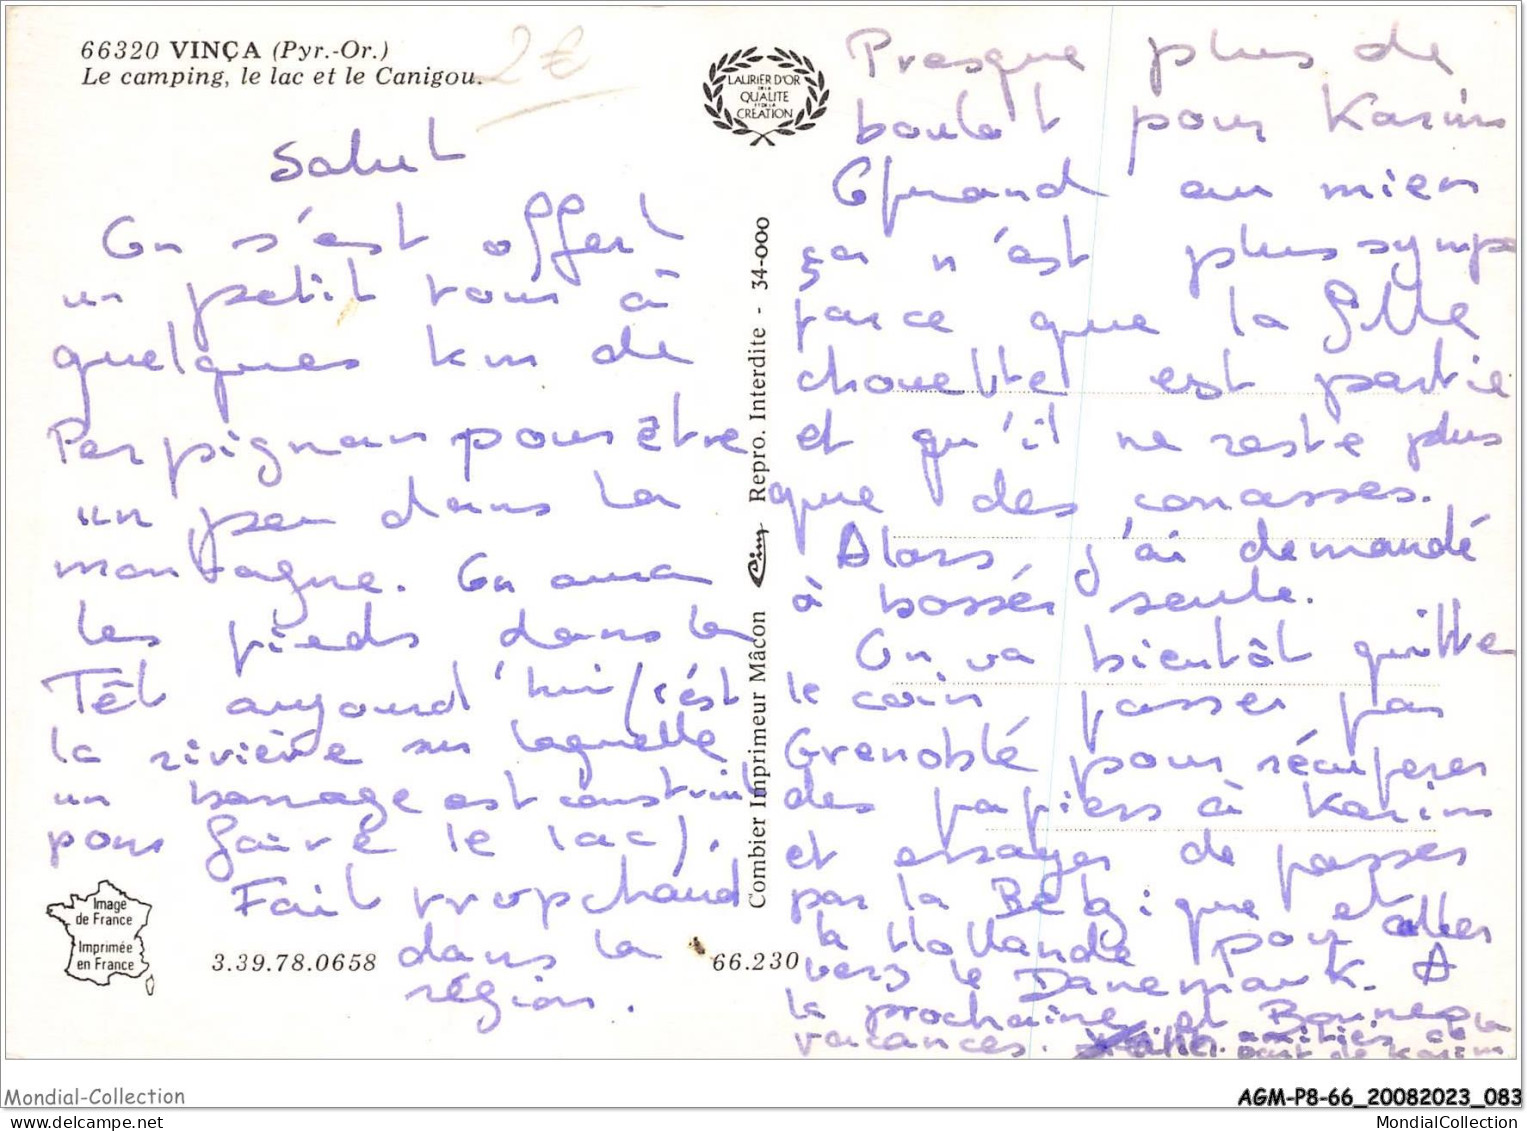 66320 VINÇA (Pyr.-Or.)
Le camping, le lac et le Canigou.
2€
Salut
On s'est offert
un petit tour à
quelques km de
Perpignan pour être
un peu dans la
montagne. On aura
les pieds dans la
Têt aujourd'hui (c'est
la rivière sur laquelle
un barrage est construit
pour faire le lac).
Fait trop chaud
dans la
région.
Image
de France
Imprimée
en France
3.39.78.0658
66.230
LAURIER D'OR
DE LA
QUALITE
ET DE LA
CREATION
Combier Imprimeur Mâcon Cim Repro. Interdite - 34-000
Presque plus de
boulot pour Karim
Quand au mien
ça n'est plus sympa
parce que la fille
chouette est partie
et qu'il ne reste plus
que des conasses.
Alors j'ai demandé
à bosser seule.
On va bientôt quitter
le coin passer par
Grenoble pour récupérer
des papiers à Karim
et essayer de passer
par la Belgique et
la Hollande pour aller
vers le Danemark. A
la prochaine et Bonnes
vacances. amitiés de la
part de Karim
Mondial-Collection
AGM-P8-66_20082023_083
MondialCollection